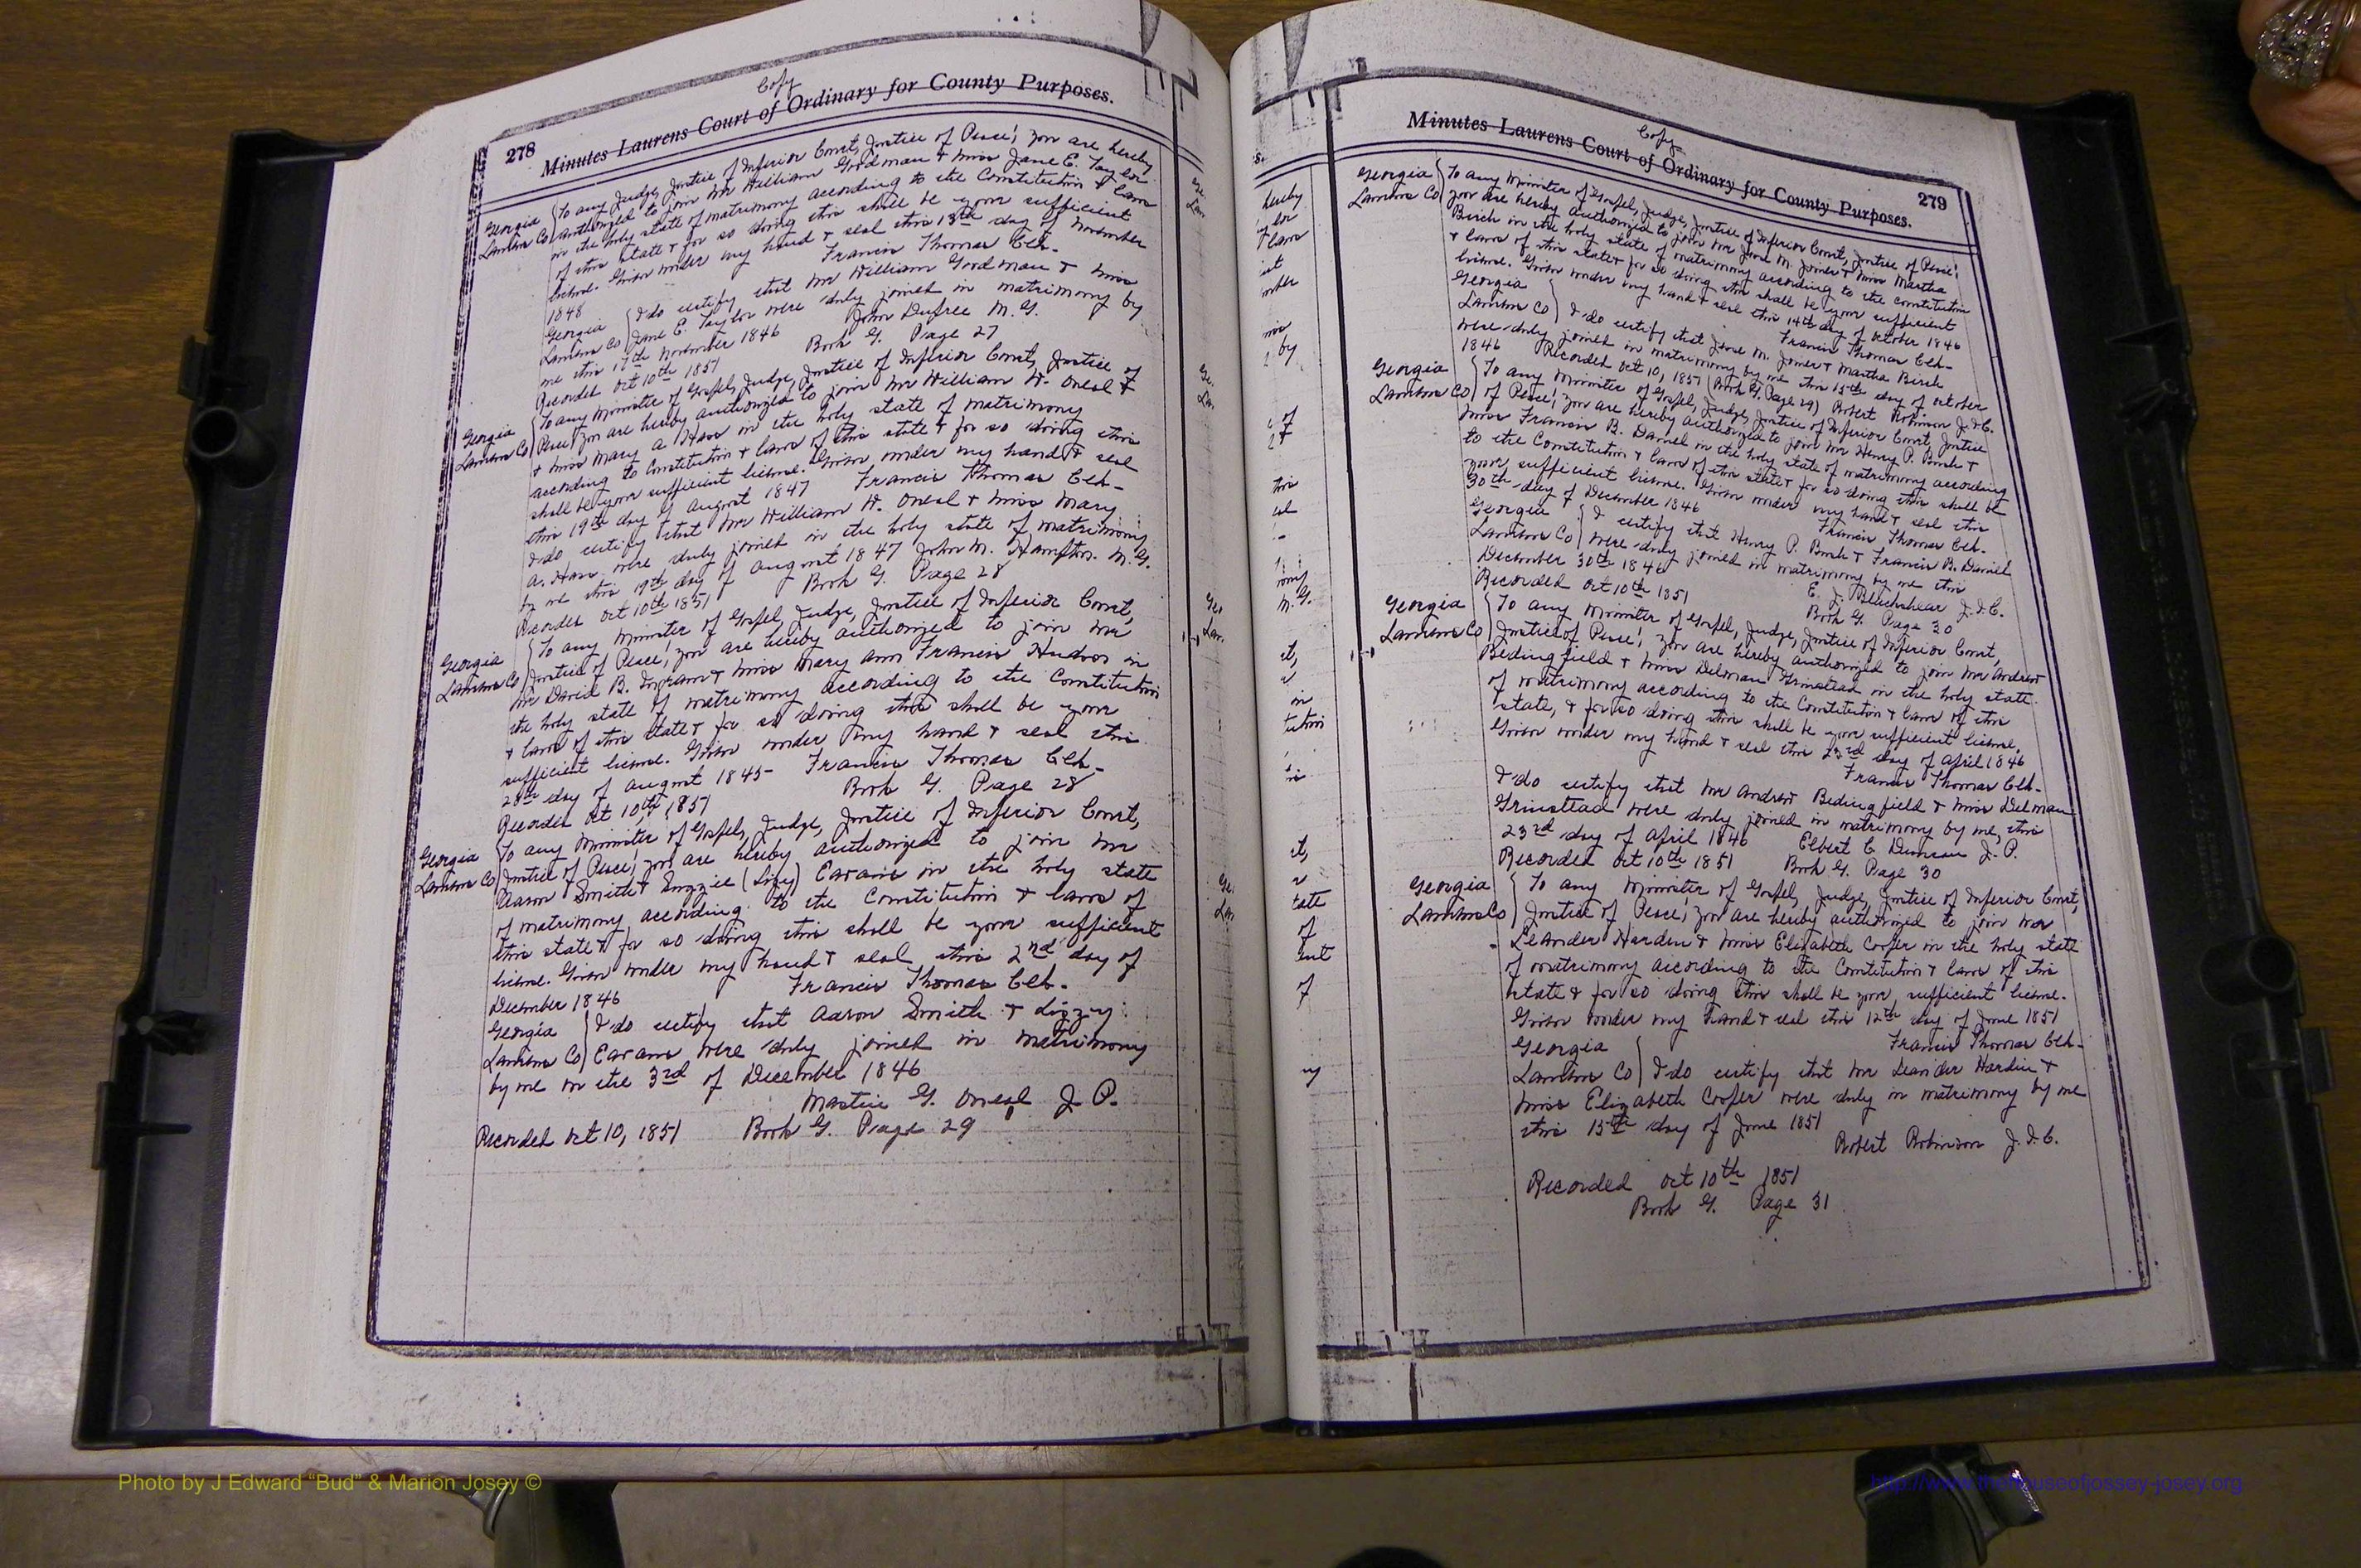 Copy
278 Minutes Laurens Court of Ordinary for County Purposes.
Georgia
Laurens Co
To any Judge, Justice of Inferior Court, Justice of Peace; you are hereby
authorized to join Mr William Goodman & Miss Jane E. Taylor
in the holy state of matrimony according to the Constitution & laws
of this state & for so doing this shall be your sufficient
license. Given under my hand & seal this 13th day of November
1848 Francis Thomas Clk.
Georgia
Laurens Co
I do certify that Mr William Goodman & Miss
Jane E. Taylor were duly joined in matrimony by
me this 17th November 1846 John Dupree M. G.
Recorded Oct 10th 1851 Book G. Page 27
Georgia
Laurens Co
To any Minister of Gospel, Judge, Justice of Inferior Court, Justice of
Peace; you are hereby authorized to join Mr William W. Oneal &
& Miss Mary A. in the holy state of matrimony
according to Constitution & laws of this state & for so doing this
shall be your sufficient license. Given under my hand & seal
this 19th day of August 1847 Francis Thomas Clk-
I do certify that Mr William W. Oneal & Miss Mary
A. were duly joined in the holy state of matrimony
by me this 19th day of August 1847 John M. Hampton. M. G.
Recorded Oct 10th 1851 Book G. Page 28
Georgia
Laurens Co
To any Minister of Gospel, Judge, Justice of Inferior Court,
Justice of Peace; you are hereby authorized to join Mr
Mr David B. Ingram & Miss Mary Ann Francis in
the holy state of matrimony according to the Constitution
& laws of this state & for so doing this shall be your
sufficient license. Given under my hand & seal this
28th day of August 1845- Francis Thomas Clk-
Recorded Oct 10th, 1851 Book G. Page 28
Georgia
Laurens Co
To any Minister of Gospel, Judge, Justice of Inferior Court,
Justice of Peace; you are hereby authorized to join Mr
Aaron Smith & (Lizy) in the holy state
of matrimony according to the Constitution & laws of
this state & for so doing this shall be your sufficient
license. Given under my hand & seal this 2nd day of
December 1846 Francis Thomas Clk.
Georgia
Laurens Co
I do certify that Aaron Smith & Lizzy
were duly joined in matrimony
by me on the 3rd of December 1846
G. Oneal J. P.
Recorded Oct 10, 1851 Book G. Page 29
Copy
Minutes Laurens Court of Ordinary for County Purposes. 279
Georgia
Laurens Co
To any Minister of Gospel, Judge, Justice of Inferior Court, Justice of Peace;
you are hereby authorized to join Mr M. Joiner & Miss Martha
Birch in the holy state of matrimony according to the constitution
& laws of this state & for so doing this shall be your sufficient
license. Given under my hand & seal this 14th day of October 1846
Francis Thomas Clk-
Georgia
Laurens Co
I do certify that M. Joiner & Martha Birch
were duly joined in matrimony by me this 15th day of October
1846 Recorded Oct 10, 1851 (Book G. Page 29) Robert Robinson J. I. C.
Georgia
Laurens Co
To any Minister of Gospel, Judge, Justice of Inferior Court, Justice
of Peace; you are hereby authorized to join Mr Henry P. &
Miss Francis B. Daniel in the holy state of matrimony according
to the Constitution & laws of this state & for so doing this shall be
your sufficient license. Given under my hand & seal this
30th day of December 1846 Francis Thomas Clk-
Georgia
Laurens Co
I certify that Henry P. & Francis B. Daniel
were duly joined in matrimony by me this
December 30th 1846 E. J. Blackshear J. I. C.
Recorded Oct 10th 1851 Book G. Page 30
Georgia
Laurens Co
To any Minister of Gospel, Judge, Justice of Inferior Court,
Justice of Peace; you are hereby authorized to join Mr Andrew
Bedingfield & Miss Grinstead in the holy state
of matrimony according to the Constitution & laws of this
state, & for so doing this shall be your sufficient license.
Given under my hand & seal this 23rd day of April 1846
Francis Thomas Clk-
I do certify that Mr Andrew Bedingfield & Miss
Grinstead were duly joined in matrimony by me, this
23rd day of April 1846 Elbert C. Duncan J. P.
Recorded Oct 10th 1851 Book G. Page 30
Georgia
Laurens Co
To any Minister of Gospel, Judge, Justice of Inferior Court,
Justice of Peace; you are hereby authorized to join Mr
Leander Hardin & Miss Elizabeth Cooper in the holy state
of matrimony according to the Constitution & laws of this
state & for so doing this shall be your sufficient license.
Given under my hand & seal this 12th day of June 1851
Francis Thomas Clk-
Georgia
Laurens Co
I do certify that Mr Leander Hardin &
Miss Elizabeth Cooper were duly in matrimony by me
this 15th day of June 1851
Robert Robinson J. I. C.
Recorded Oct 10th 1851
Book G. Page 31
Photo by J Edward “Bud” & Marion Josey ©
http://www.thehouseofjossey-josey.org